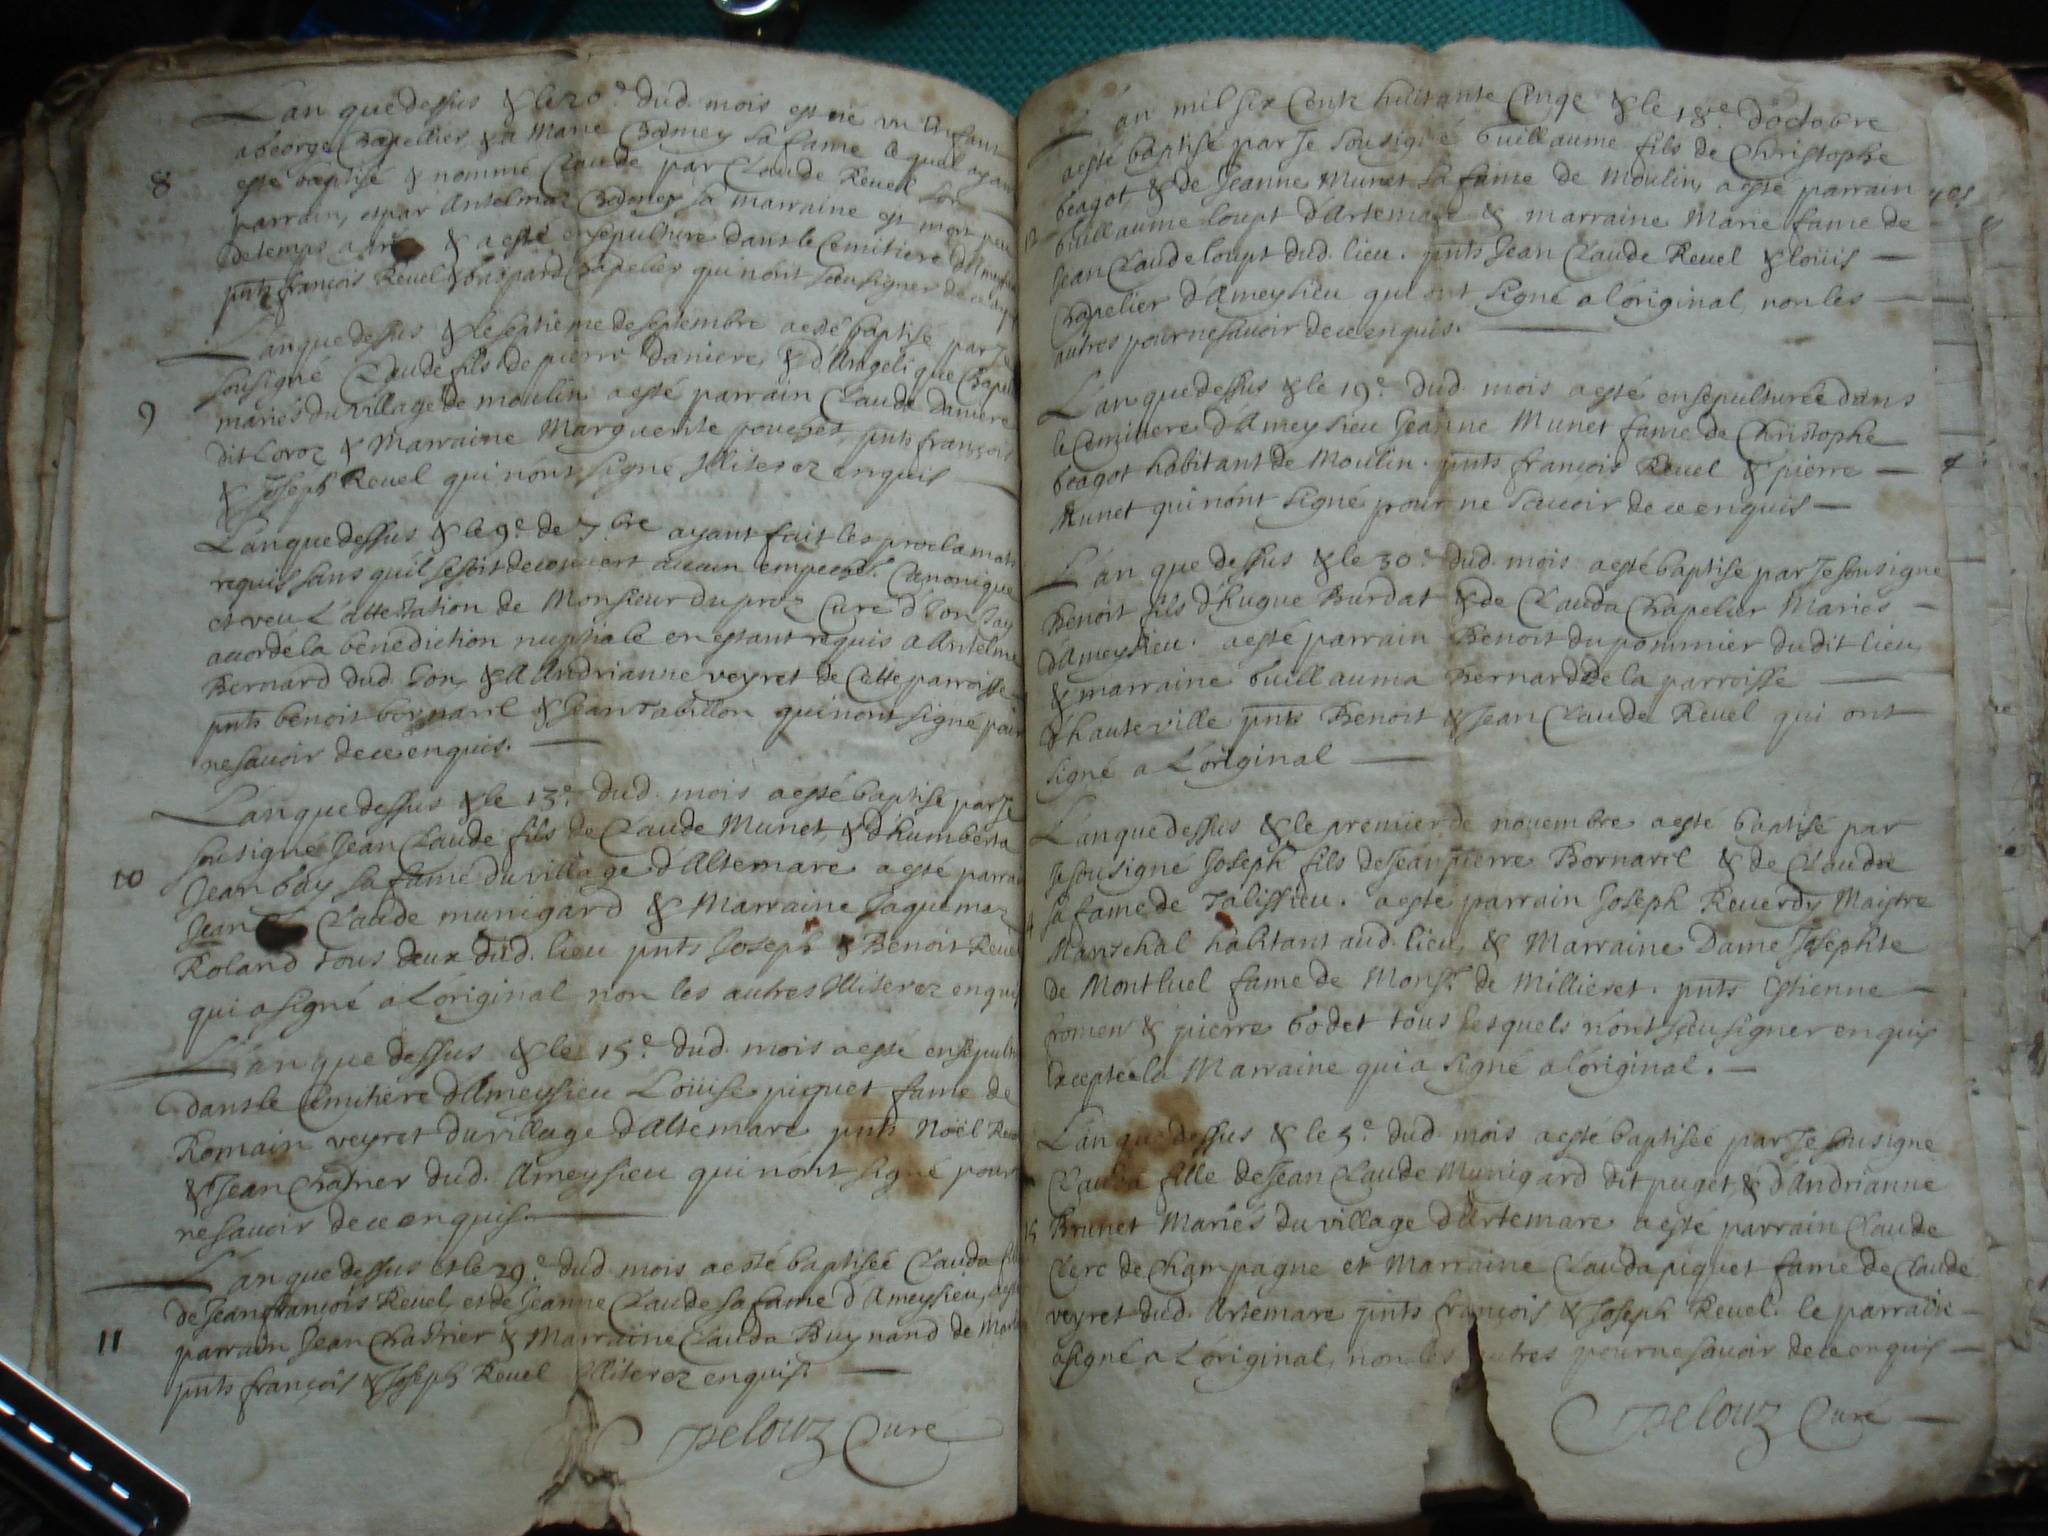 L'an que dessus & le 20.e dud. mois est né un Enfant
a George Chapellier & a Marie Bodmey sa fame lequel ayant
8 esté baptisé & nommé Claude par Claude Revel son
parrain, et par Antelmaz sa marraine est mort peu
de temps & a esté ensepulturé dans le Cemitiere
pnts françois Revel & Gaspard Chapelier qui n'ont sceu signer de ce
L'an que dessus & le septieme de septembre a esté baptisé par Je
sousigné Claude fils de pierre Daniere & d'Angelique Chapel
9 mariés du village de moulin a esté parrain Claude Daniere
dit Loroz & Marraine Marguerite pouchet pnts françois
& Joseph Revel qui n'ont signé Illiterez enquis
L'an que dessus & le 9.e de 7.bre ayant fait les proclamat
requis sans qu'il se soit decouvert aucun empeche. Canonique
et veu L'attestation de Monsieur Duproz Curé d'Don J'ay
acordé la benediction nuptiale en estant requis a Antelme
Bernard dud. Don, & a Andrianne veyret de Cette parroisse
pnts benoit bornaril & Jean Tabillon qui n'ont signé pour
ne savoir de ce enquis.
L'an que dessus & le 13.e dud. mois a esté baptisé par Je
sousigné Jean Claude fils de Claude Munet, & d'humberta
10 Jean bay sa fame du village d'Altemare a esté parrai
Jean Claude munigard & Marraine Jaquemaz
Roland tous deux dud. lieu pnts Joseph & Benoit Revel
qui a signé a L'original non les autres Illiterez enquis
L'an que dessus & le 15.e dud. mois a esté ensepultu
dans le Cemitiere d'Ameysieu Loüise piquet fame de
Romain veyret du village d'Altemare pnts Noël Reve
& Jean Chatrier dud. Ameysieu qui n'ont signé pour
ne savoir de ce enquis.
L'an que dessus et le 29.e dud. mois a esté baptisée Clauda
de Jean françois Revel, et de Jeanne Claude sa fame d'Ameysieu,
11 parrain Jean Chatrier & Marraine Clauda Buynand de
pnts françois & Joseph Revel Illiterez enquis.
Delouz Curé
L'an mil six Cents huitante Cinqe & le 18.e d'octobre
a esté baptisé par Je Sousigné Guillaume fils de Christophe
beagot & de Jeanne Munet sa fame de Moulin, a esté parrain
12 Guillaume loupt d'Artemare & marraine Marie fame de
Jean Claude loupt dud. lieu. pnts Jean Claude Revel & loüis
Chapelier d'Ameysieu qui ont signé a l'original, non les
autres pour ne savoir de ce enquis.
L'an que dessus & le 19.e dud. mois a esté ensepulturée dans
le Cemitiere d'Ameysieu Jeanne Munet fame de Christophe
beagot habitant de Moulin. pnts françois Revel & pierre
Munet qui n'ont signé pour ne savoir de ce enquis
L'an que dessus & le 30.e dud. mois a esté baptisé par Je sousigné
Benoit fils d'hugue Burdat & de Clauda Chapelier Mariés
d'Ameysieu. a esté parrain Benoit du pommier du dit lieu
& marraine Guillauma Bernard de la parroisse
d'hauteville pnts Benoit & Jean Claude Revel qui ont
signé a L'original
L'an que dessus & le premier de novembre a esté baptisé par
Je sousigné Joseph fils de Jean pierre Bornaril & de Claudre
sa fame de Talissieu. a esté parrain Joseph Reverdy Maistre
Mareschal habitant aud. lieu & Marraine Dame Josephte
de Montluel fame de Monsr. de Millieret. pnts Estienne
fromen & pierre bodet tous lesquels n'ont sceu signer enquis
Exceptée la Marraine qui a signé a l'original.
L'an que dessus & le 5.e dud. mois a esté baptisée par Je sousigné
Clauda fille de Jean Claude Munigard dit puget, & d'Andrianne
15 Brunet Mariés du village d'Artemare a esté parrain Claude
Clerc de Champagne et Marraine Clauda piquet fame de Claude
veyret dud. Artemare pnts françois & Joseph Revel. le parrain
a signé a L'original, non les autres pour ne savoir de ce enquis
Delouz Curé